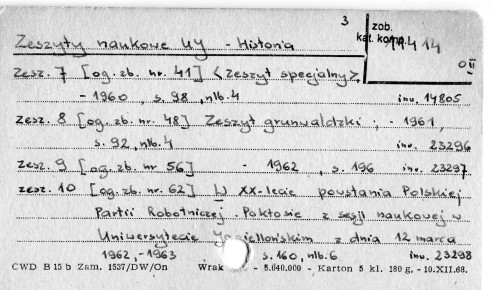 3
zob.
kat. komp.
11414
Zeszyty naukowe UJ - Historia
Zesz. 7 [og. zb. nr. 41] <Zeszyt specjalny>.
- 1960, s. 98, nlb. 4 inv. 14805
Zesz. 8 [og. zb. nr. 48] Zeszyt grunwaldzki; - 1961,
s. 92, nlb. 4 inv. 23296
Zesz. 9 [og. zb. nr 56] - 1962, s. 196 inv. 23297
zesz. 10 [og. zb. nr. 62] W XX-lecie powstania Polskiej
Partii Robotniczej. Pokłosie z sesji naukowej w
Uniwersytecie Jagiellońskim z dnia 12 marca
1962, -1963 s. 160, nlb. 6 inv. 23298
CWD B 15 b Zam. 1537/DW/On Wrak - 5.040.000 - Karton 5 kl. 180 g. - 10.XII.68.